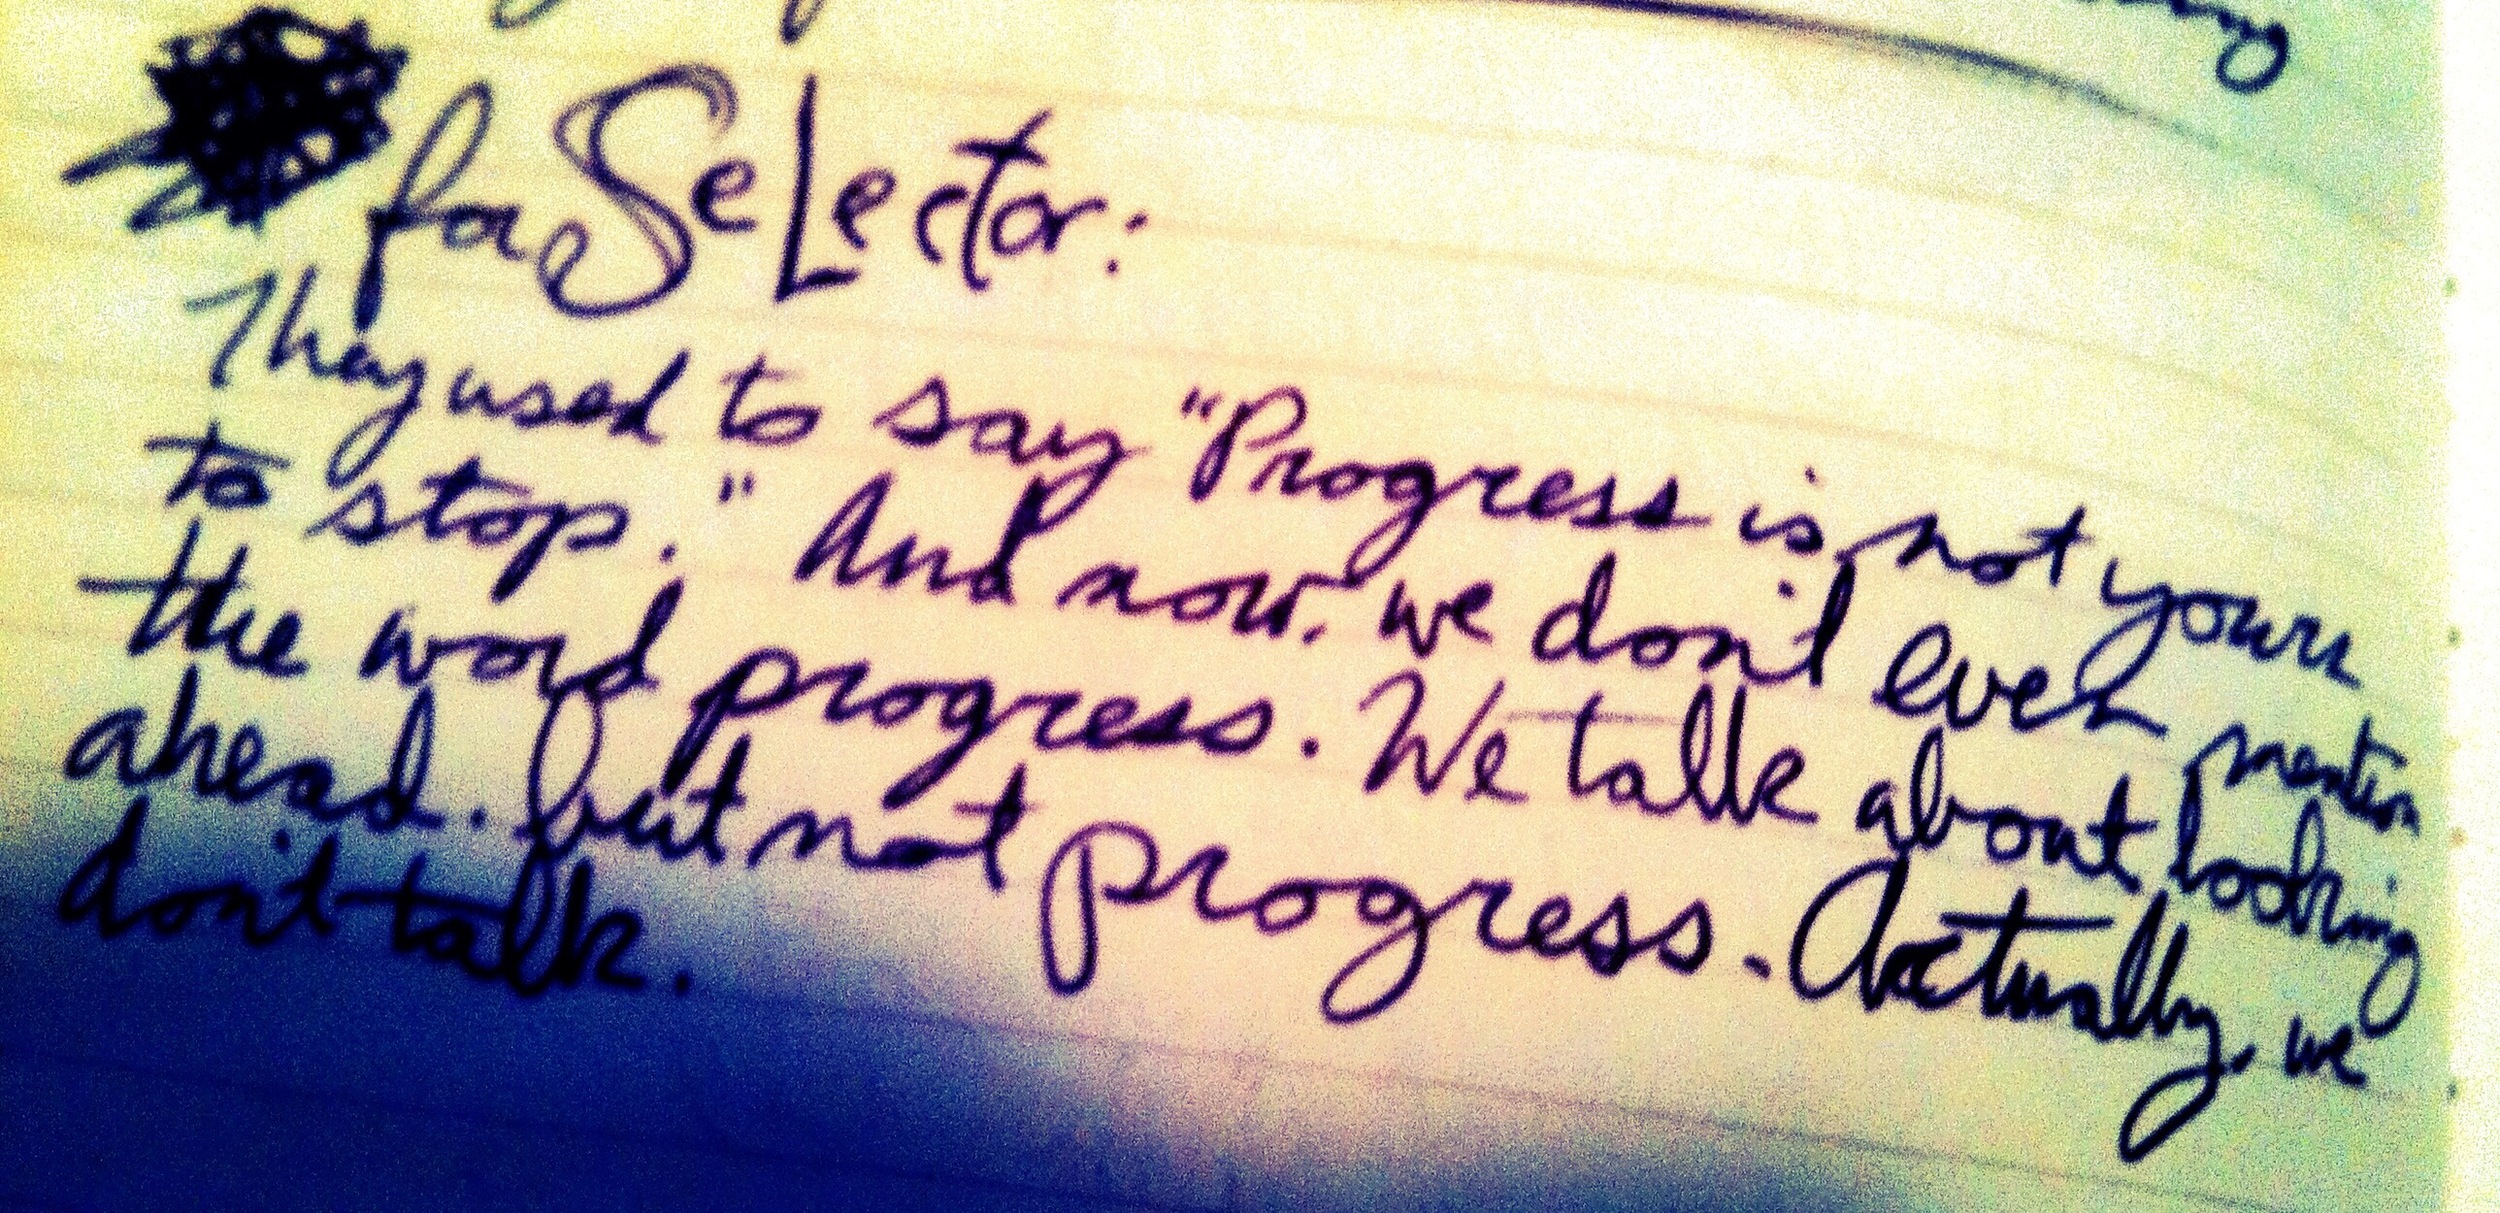 for SeLector:
They used to say "Progress is not yours
to stop." And now, we don't even mention
the word progress. We talk about looking
ahead. but not progress. Actually, we
don't talk.